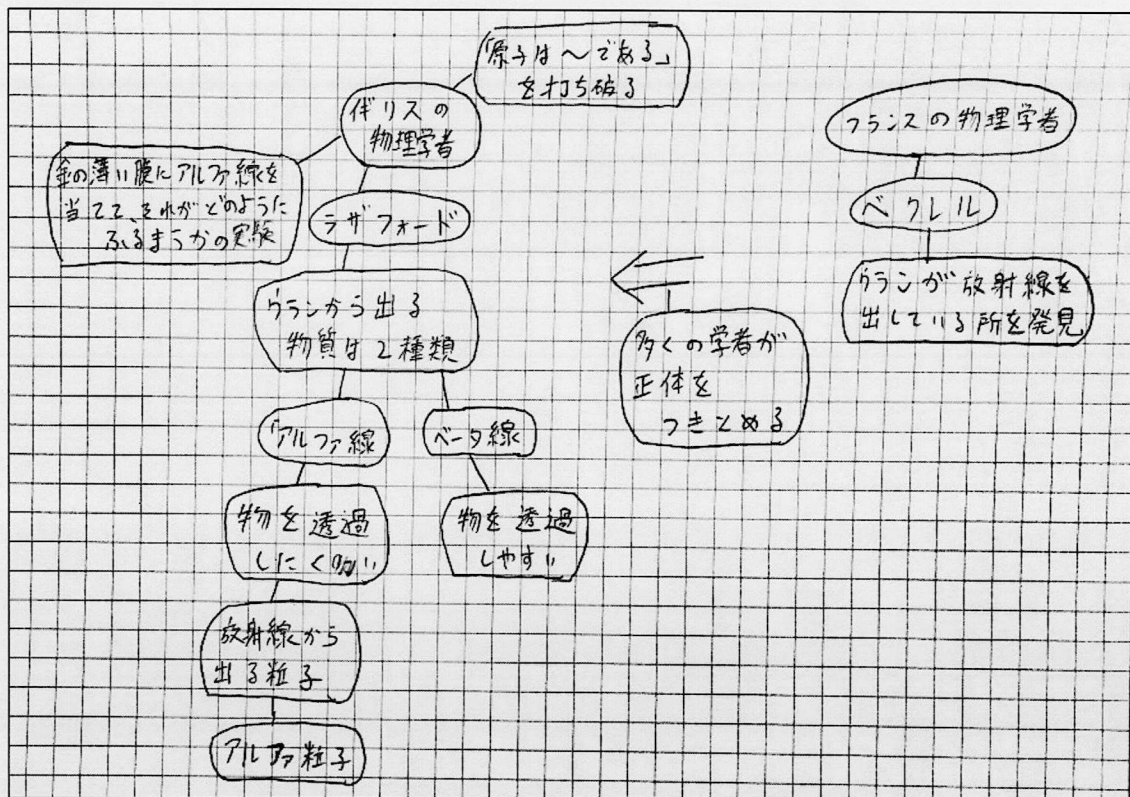 「原子は～である」
を打ち破る
イギリスの
物理学者
金の薄い膜にアルファ線を
当てて、それがどのように
ふるまうかの実験
ラザフォード
ウランから出る
物質は2種類
アルファ線
ベータ線
物を透過
しにくい
物を透過
しやすい
放射線から
出る粒子
アルファ粒子
多くの学者が
正体を
つきとめる
フランスの物理学者
ベクレル
ウランが放射線を
出している所を発見